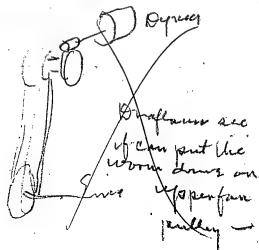 Dynea
Draftsman see
if can put the
worm drive on
upper fan
pulley —